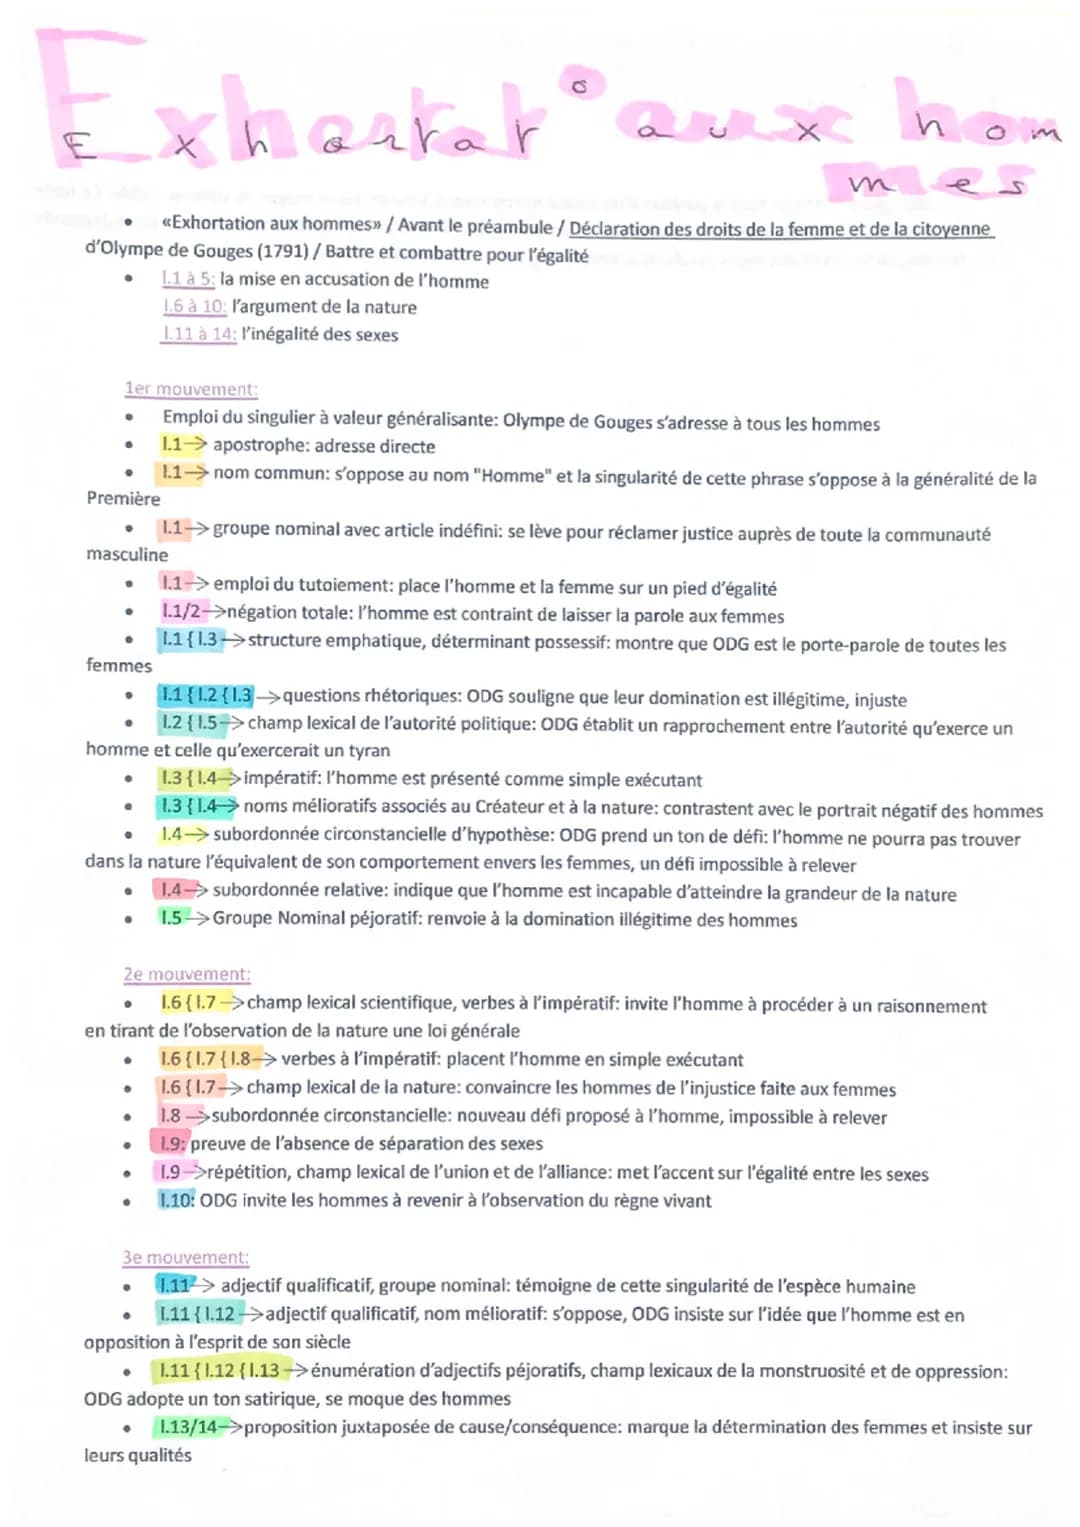 Exhortat° aux hom
mes
• «Exhortation aux hommes» / Avant le préambule / Déclaration des droits de la femme et de la citoyenne
d'Olympe de Gouges (1791) / Battre et combattre pour l'égalité
• l.1 à 5: la mise en accusation de l'homme
l.6 à 10: l'argument de la nature
l.11 à 14: l'inégalité des sexes
1er mouvement:
• Emploi du singulier à valeur généralisante: Olympe de Gouges s'adresse à tous les hommes
• l.1→ apostrophe: adresse directe
• l.1→ nom commun: s'oppose au nom "Homme" et la singularité de cette phrase s'oppose à la généralité de la
Première
• l.1→ groupe nominal avec article indéfini: se lève pour réclamer justice auprès de toute la communauté
masculine
• l.1→ emploi du tutoiement: place l'homme et la femme sur un pied d'égalité
• l.1/2→négation totale: l'homme est contraint de laisser la parole aux femmes
• l.1 { l.3→structure emphatique, déterminant possessif: montre que ODG est le porte-parole de toutes les
femmes
• l.1 { l.2 { l.3→questions rhétoriques: ODG souligne que leur domination est illégitime, injuste
• l.2 { l.5→ champ lexical de l'autorité politique: ODG établit un rapprochement entre l'autorité qu'exerce un
homme et celle qu'exercerait un tyran
• l.3 { l.4→impératif: l'homme est présenté comme simple exécutant
• l.3 { l.4→ noms mélioratifs associés au Créateur et à la nature: contrastent avec le portrait négatif des hommes
• l.4→ subordonnée circonstancielle d'hypothèse: ODG prend un ton de défi: l'homme ne pourra pas trouver
dans la nature l'équivalent de son comportement envers les femmes, un défi impossible à relever
• l.4→ subordonnée relative: indique que l'homme est incapable d'atteindre la grandeur de la nature
• l.5→Groupe Nominal péjoratif: renvoie à la domination illégitime des hommes
2e mouvement:
• l.6 { l.7→champ lexical scientifique, verbes à l'impératif: invite l'homme à procéder à un raisonnement
en tirant de l'observation de la nature une loi générale
• l.6 { l.7 { l.8→ verbes à l'impératif: placent l'homme en simple exécutant
• l.6 { l.7→ champ lexical de la nature: convaincre les hommes de l'injustice faite aux femmes
• l.8→subordonnée circonstancielle: nouveau défi proposé à l'homme, impossible à relever
• l.9: preuve de l'absence de séparation des sexes
• l.9→répétition, champ lexical de l'union et de l'alliance: met l'accent sur l'égalité entre les sexes
• l.10: ODG invite les hommes à revenir à l'observation du règne vivant
3e mouvement:
• l.11→ adjectif qualificatif, groupe nominal: témoigne de cette singularité de l'espèce humaine
• l.11 { l.12→adjectif qualificatif, nom mélioratif: s'oppose, ODG insiste sur l'idée que l'homme est en
opposition à l'esprit de son siècle
• l.11 { l.12 { l.13→énumération d'adjectifs péjoratifs, champ lexicaux de la monstruosité et de oppression:
ODG adopte un ton satirique, se moque des hommes
• l.13/14→proposition juxtaposée de cause/conséquence: marque la détermination des femmes et insiste sur
leurs qualités